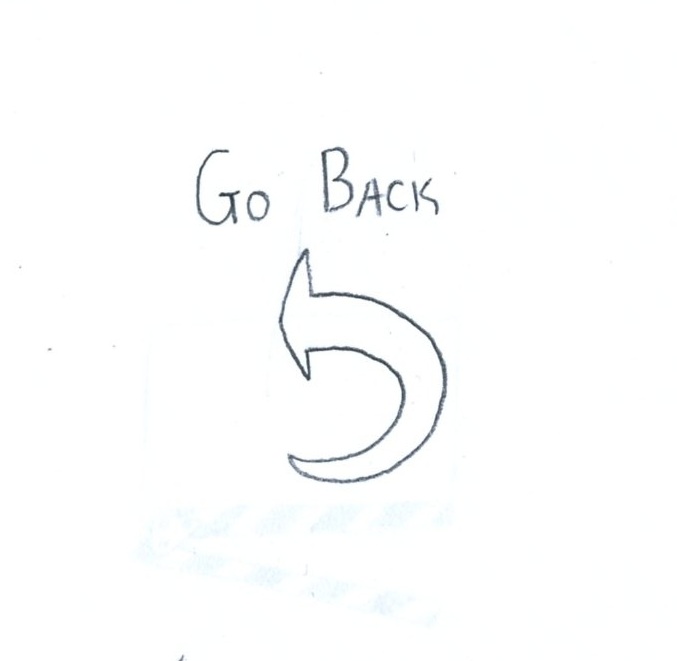 Go Back